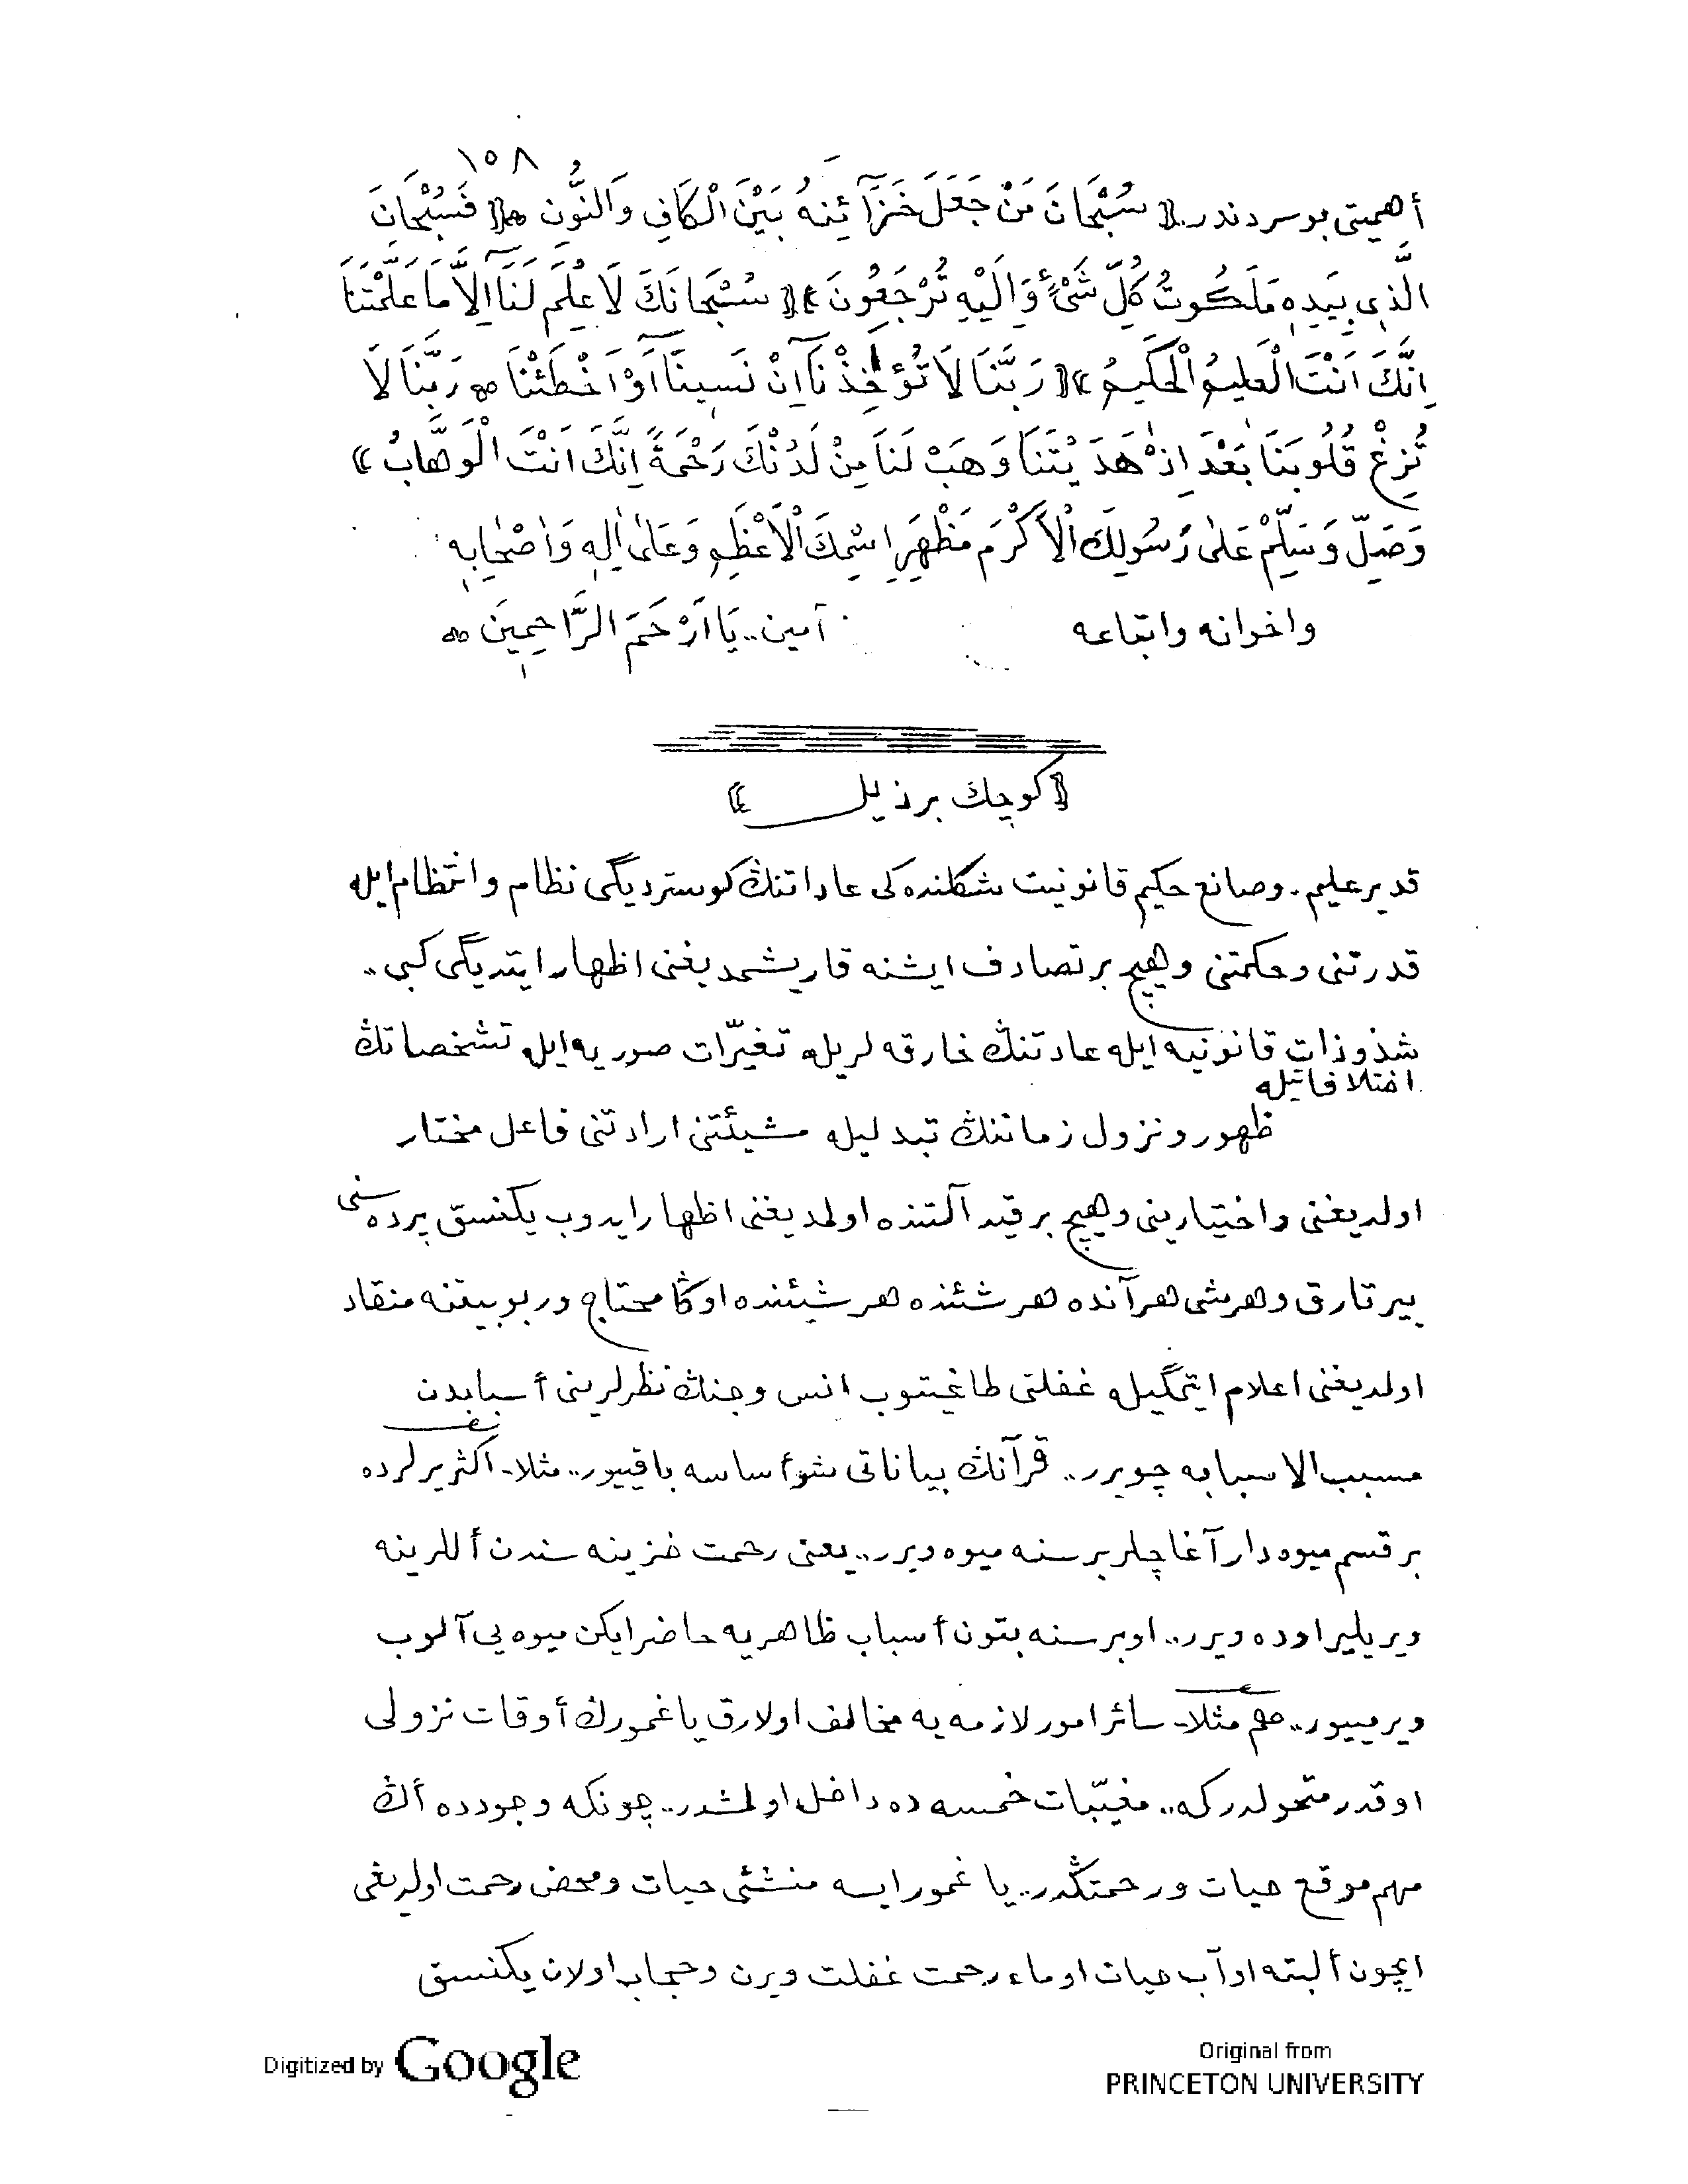 ١٥٨
أهميتى بو سردندر. ﴿ سُبْحَانَ مَنْ جَعَلَ خَزَآئِنُهُ بَيْنَ الْكَافِ وَالنُّونِ ﴾ ﴿ فَسُبْحَانَ
الَّذِى بِيَدِهِ مَلَكُوتُ كُلِّ شَىْءٍ وَاِلَيْهِ تُرْجَعُونَ ﴾ ﴿ سُبْحَانَكَ لَا عِلْمَ لَنَآ اِلاَّ مَا عَلَّمْتَنَا
اِنَّكَ اَنْتَ الْعَلِيمُ الْحَكِيمُ ﴾ ﴿ رَبَّنَا لَا تُؤَاخِذْنَآ اِنْ نَسِينَآ اَوْ اَخْطَئْنَا ۞ رَبَّنَا لَا
تُزِغْ قُلُوبَنَا بَعْدَ اِذْ هَدَيْتَنَا وَهَبْ لَنَا مِنْ لَدُنْكَ رَحْمَةً اِنَّكَ اَنْتَ الْوَهَّابُ ﴾
وَصَلِّ وَسَلِّمْ عَلٰى رَسُولِكَ الْاَكْرَمِ مَظْهَرِ اِسْمِكَ الْاَعْظَمِ وَعَلٰى اٰلِهِ وَاَصْحَابِهِ
واخوانه واتباعه آمين.. يَا اَرْحَمَ الرَّاحِمِينَ ۞
﴿ كوچك بر ذيل ﴾
قدير عليم. وصانع حكيم قانونيت شكلنده كى عاداتنڭ كوستردیگى نظام وانتظام ايله
قدرتنى وحكمتنى وهيچ بر تصادف ايشنه قاريشمديغنى اظهار ايتديگى كبى..
شذوذات قانونيه ايله عادتنڭ خارقه لريله تغيّرات صوريه ايله تشخصاتڭ
اختلافاتيله
ظهور ونزول زماننڭ تبدليله مشيئتنى ارادتنى فاعل مختار
اولديغنى واختيارينى وهيچ بر قيد آلتنده اولمديغنى اظهار ايدوب يكنسق پرده سنى
ييرتارق وهر شى هر آنده هر شئنده هر شيئنده اوڭا محتاج وربوبيتنه منقاد
اولديغنى اعلام ايتمگيله غفلتى طاغيتوب انس وجنڭ نظرلرينى أسبابدن
مسبب الاسبابه چويرر.. قرآنڭ بياناتى شو أساسه باقييور.. مثلا- اكثر يرلرده
بر قسم ميوه دار آغاچلر بر سنه ميوه ويرر.. يعنى رحمت خزينه سندن أللرينه
ويريلير اوده ويرر.. اوبر سنه بتون أسباب ظاهريه حاضر ايكن ميوه يى آلوب
ويرمييور.. هم مثلا- سائر امور لازمه يه مخالف اولارق ياغمورڭ أوقات نزولى
او قدر متحولدر كه.. مغيّبات خمسه ده داخل اولمشدر.. چونكه وجودده أڭ
مهم موقع حيات ورحمتڭدر.. ياغمور ايسه منشئى حيات ومحض رحمت اولديغى
ايچون ألبته او آب حيات او ماء رحمت غفلت ويرن وحجاب اولان يكنسق
Digitized by Google
Original from
PRINCETON UNIVERSITY